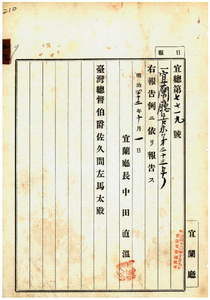 210
日報
宜總第七七一九號
一宜蘭廳
右報告例ニ依リ報告ス
明治四十三年十月一日
宜蘭廳長中田直溫
臺灣總督伯爵佐久間左馬太殿
宜蘭廳